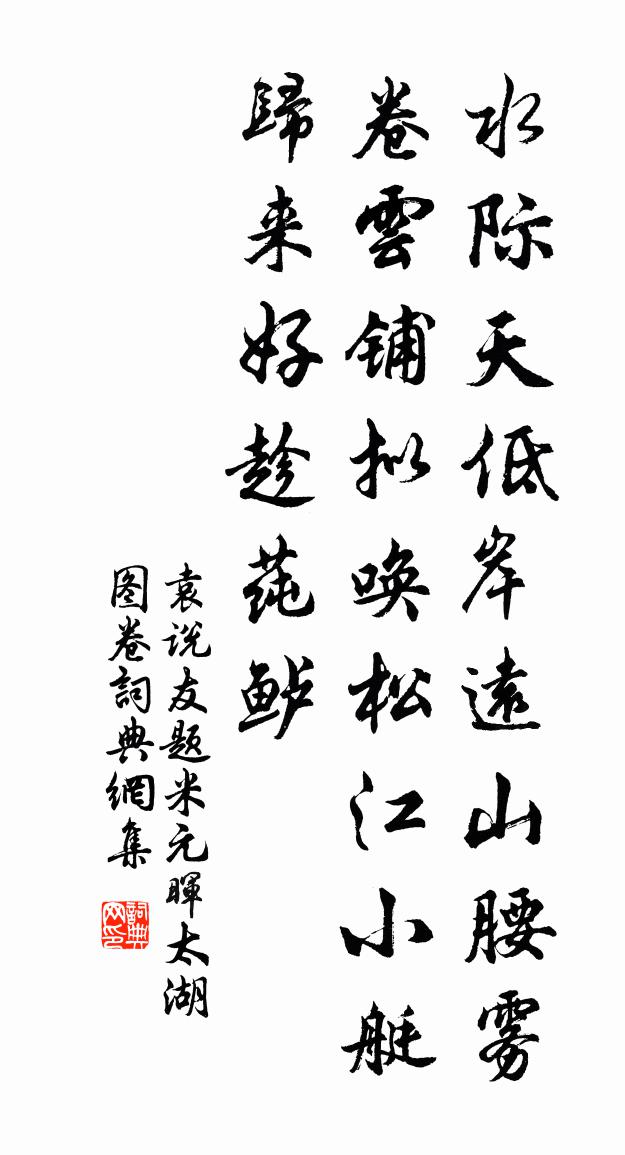 水际天低岸遠山腰雾
卷雲铺拟唤松江小艇
歸来好趁莼鲈
袁说友题米元暉太湖
图卷詞典網集
詞典
网印